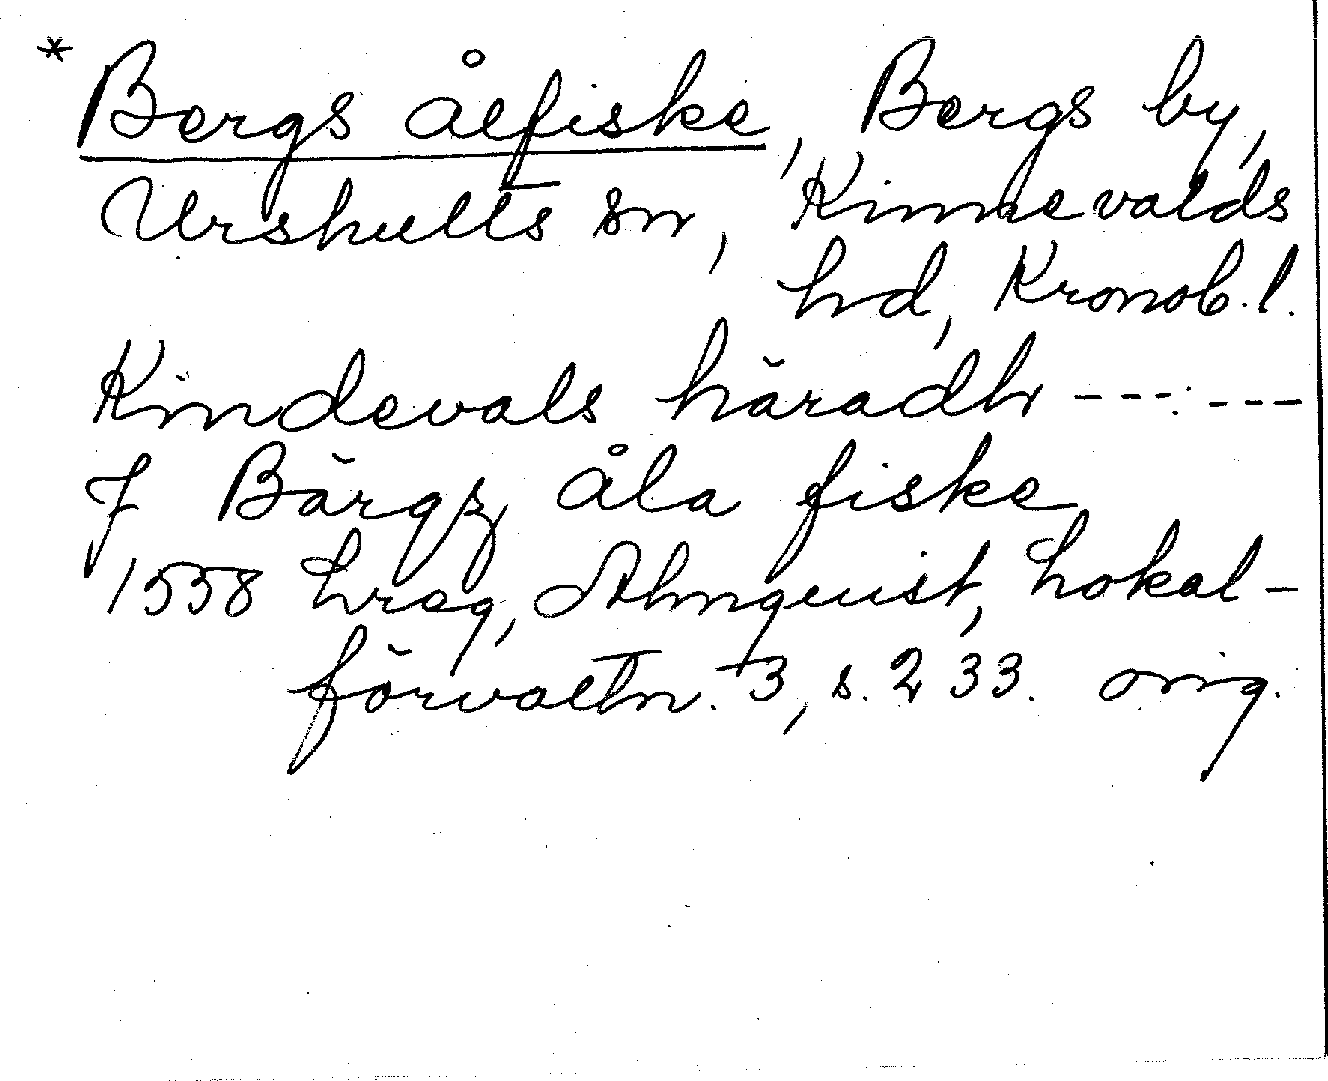 * Bergs ålfiske, Bergs by,
Urshults sn, Kinnevalds
hd, Kronob. l.
Kindevals häradh ---:---
J Bärgz åla fiske
1558 hreg, Almquist, Lokal-
förvaltn. 3, s. 233. orig.